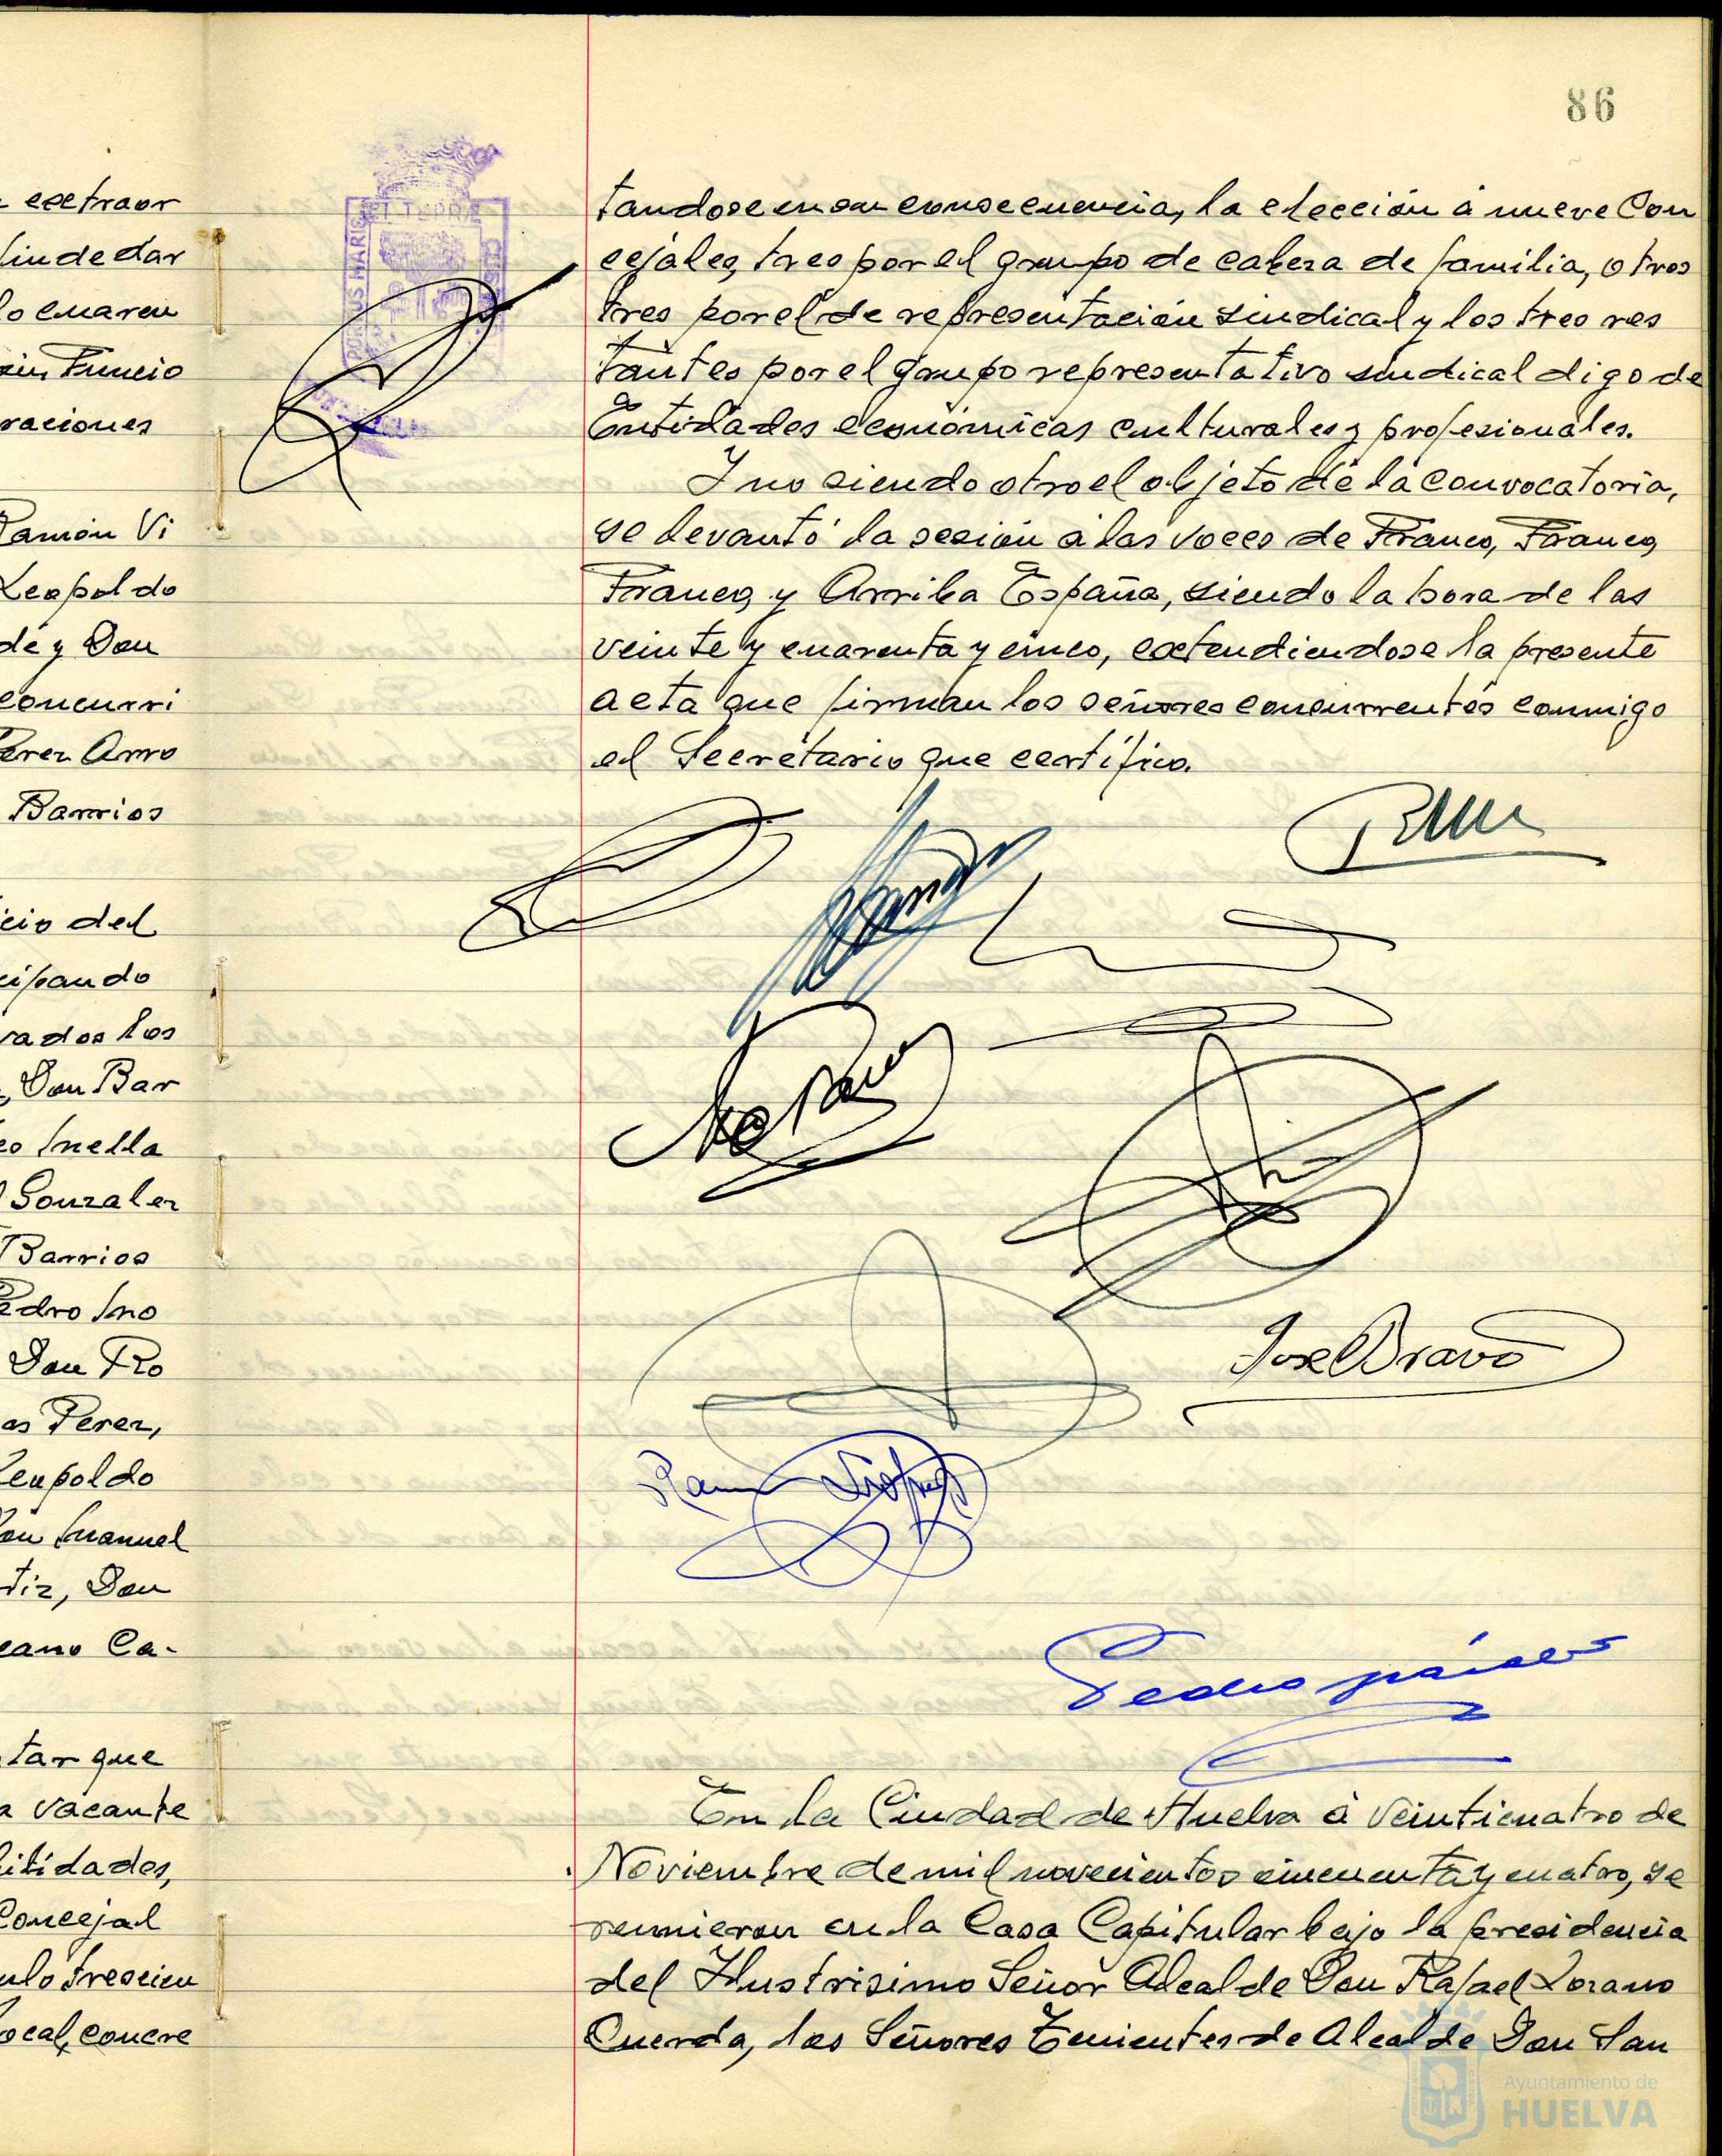 86
extraor
fin de dar
lo cuaren
sin Funcio
raciones
Ramón Vi
Leopoldo
de y Don
concurri
Perez Arro
Barrios
cio del
cipando
rados los
Don Bar
co Inella
Gonzalez
Barrios
Pedro Ino
Don Fco
as Perez,
Leopoldo
Don Manuel
tiz, Don
cano Ca-
tar que
a vacante
bilidades,
Concejal
ulo trescien
ocal, concre
PORTUS MARIS ET TERRÆ
tandose en su consecuencia, la elección a nueve Con
cejales, tres por el grupo de cabeza de familia, otros
tres por el de representación sindical y los tres res
tantes por el grupo representativo sindical digo de
Entidades económicas culturales y profesionales.
Y no siendo otro el objeto de la convocatoria,
se levantó la sesión a las voces de Franco, Franco,
Franco, y Arriba España, siendo la hora de las
veinte y cuarenta y cinco, extendiendose la presente
acta que firman los señores concurrentes conmigo
el Secretario que certifico.
Jose Bravo
Ramon
Pedro
En la Ciudad de Huelva á veinticuatro de
Noviembre de mil novecientos cincuenta y cuatro, se
reunieron en la Casa Capitular bajo la presidencia
del Ilustrisimo Señor Alcalde Don Rafael Lozano
Cuerda, los Señores Tenientes de Alcalde Don San
Ayuntamiento de
HUELVA